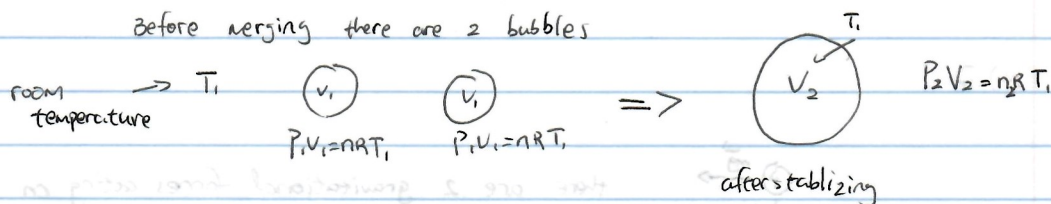 Before merging there are 2 bubbles
T₁
room temperature → T₁
V₁
V₁
=>
V₂
P₂V₂ = n₂RT₁
P₁V₁ = nRT₁
P₁V₁ = nRT₁
after stablizing